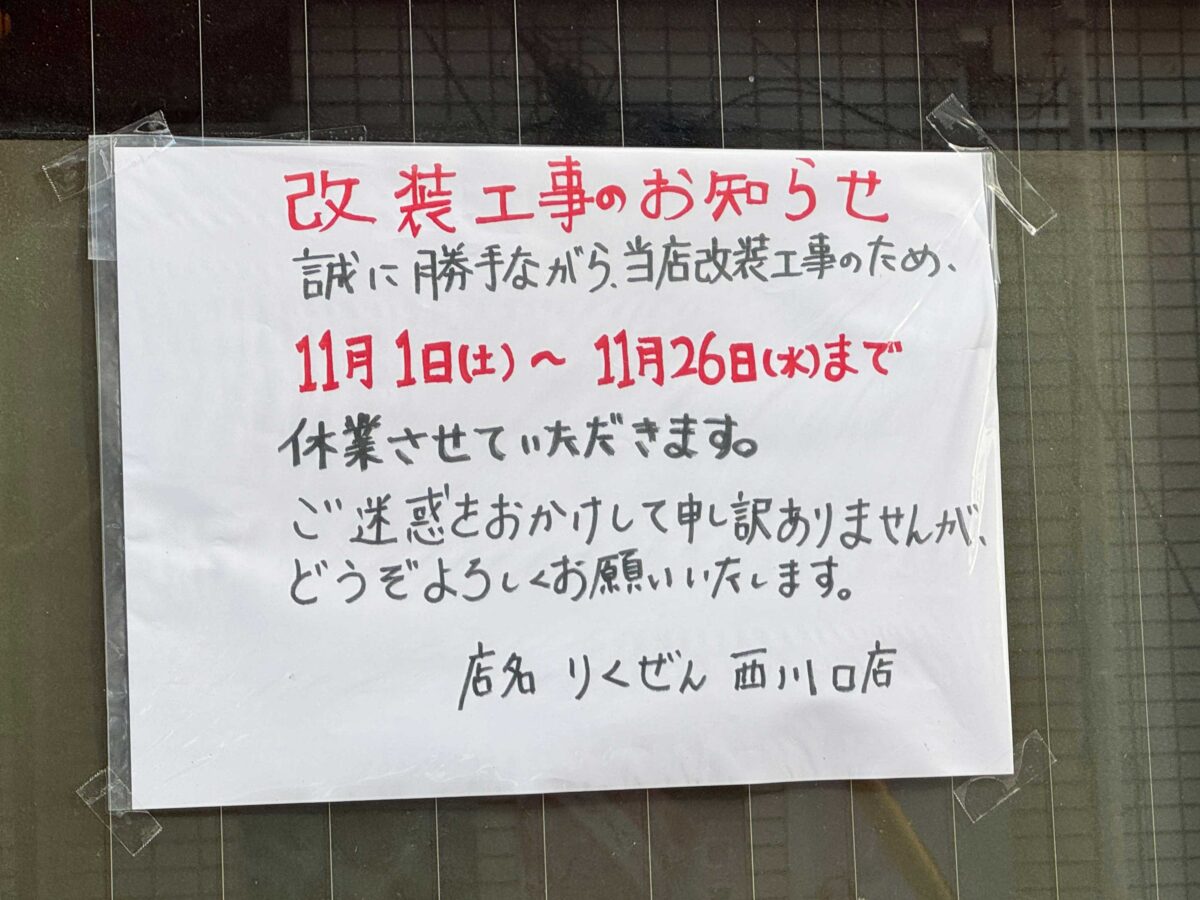 改装工事のお知らせ
誠に勝手ながら、当店改装工事のため、
11月1日(土)～11月26日(水)まで
休業させていただきます。
ご迷惑をおかけして申し訳ありませんが、
どうぞよろしくお願いいたします。
店名 りくぜん 西川口店